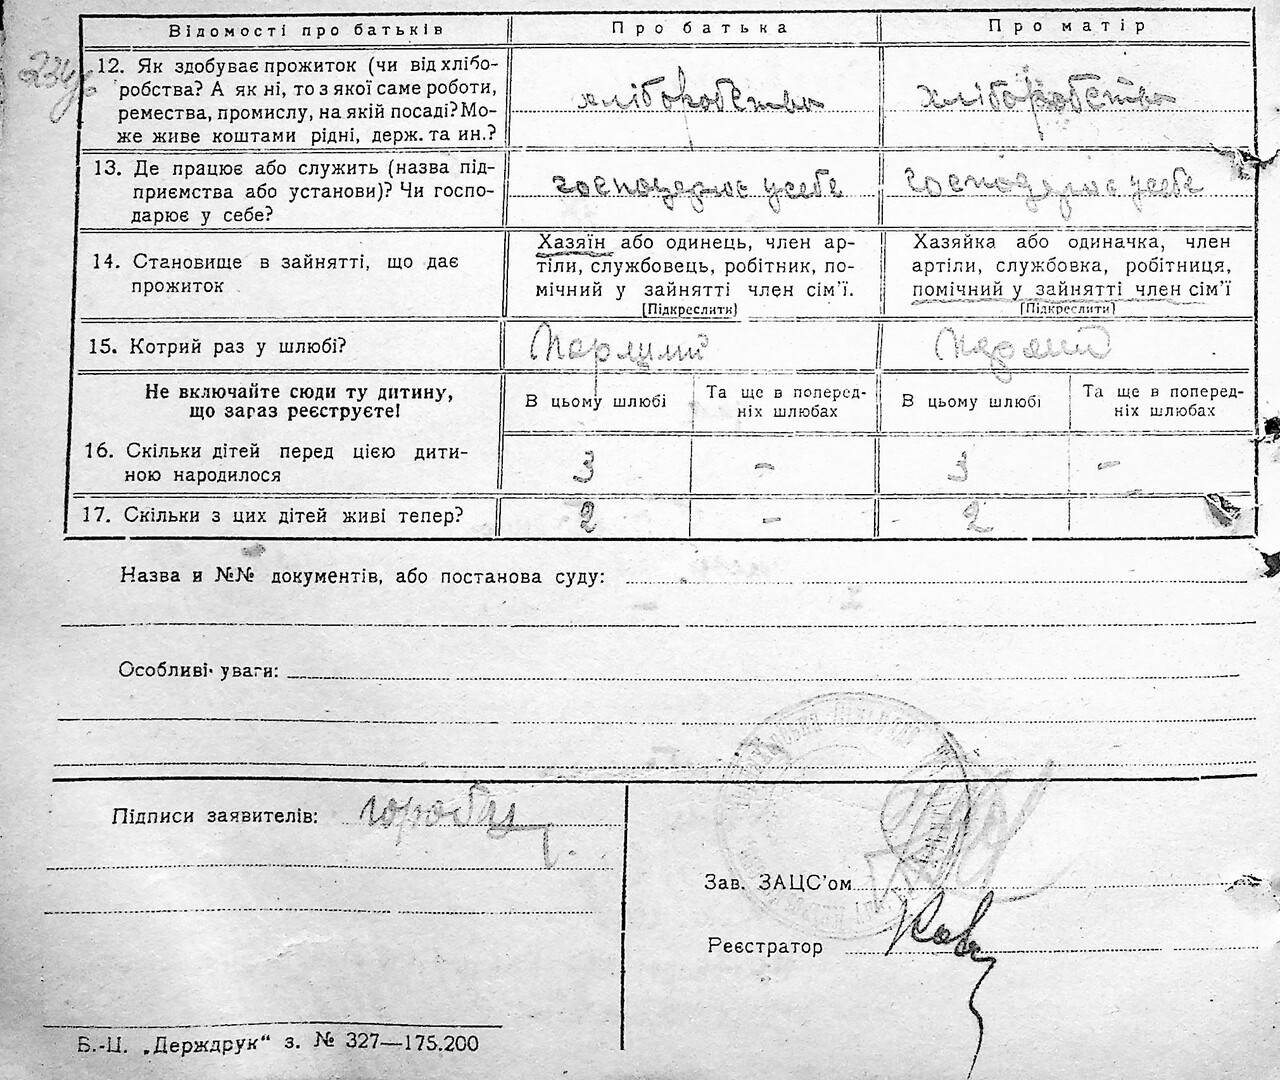 Відомості про батьків Про батька Про матір
234
12. Як здобуває прожиток (чи від хлібо-
робства? А як ні, то з якої саме роботи,
ремества, промислу, на якій посаді? Мо-
же живе коштами рідні, держ. та ин.?
хліборобство хліборобство
13. Де працює або служить (назва під-
приємства або установи)? Чи госпо-
дарює у себе?
господарює у себе господарює у себе
14. Становище в зайнятті, що дає
прожиток
Хазяїн або одинець, член ар-
тіли, службовець, робітник, по-
мічний у зайнятті член сім'ї.
(Підкреслити)
Хазяйка або одиначка, член
артіли, службовка, робітниця,
помічний у зайнятті член сім'ї
(Підкреслити)
15. Котрий раз у шлюбі?
Не включайте сюди ту дитину,
що зараз реєструєте!
В цьому шлюбі
Та ще в поперед-
ніх шлюбах
В цьому шлюбі
Та ще в поперед-
ніх шлюбах
16. Скільки дітей перед цією дити-
ною народилося
3 - 3 -
17. Скільки з цих дітей живі тепер?
2 - 2
Назва и №№ документів, або постанова суду:
Особливі уваги:
Підписи заявителів:
Зав. ЗАЦС'ом
Реєстратор
Б.-Ц. „Держдрук" з. № 327—175.200